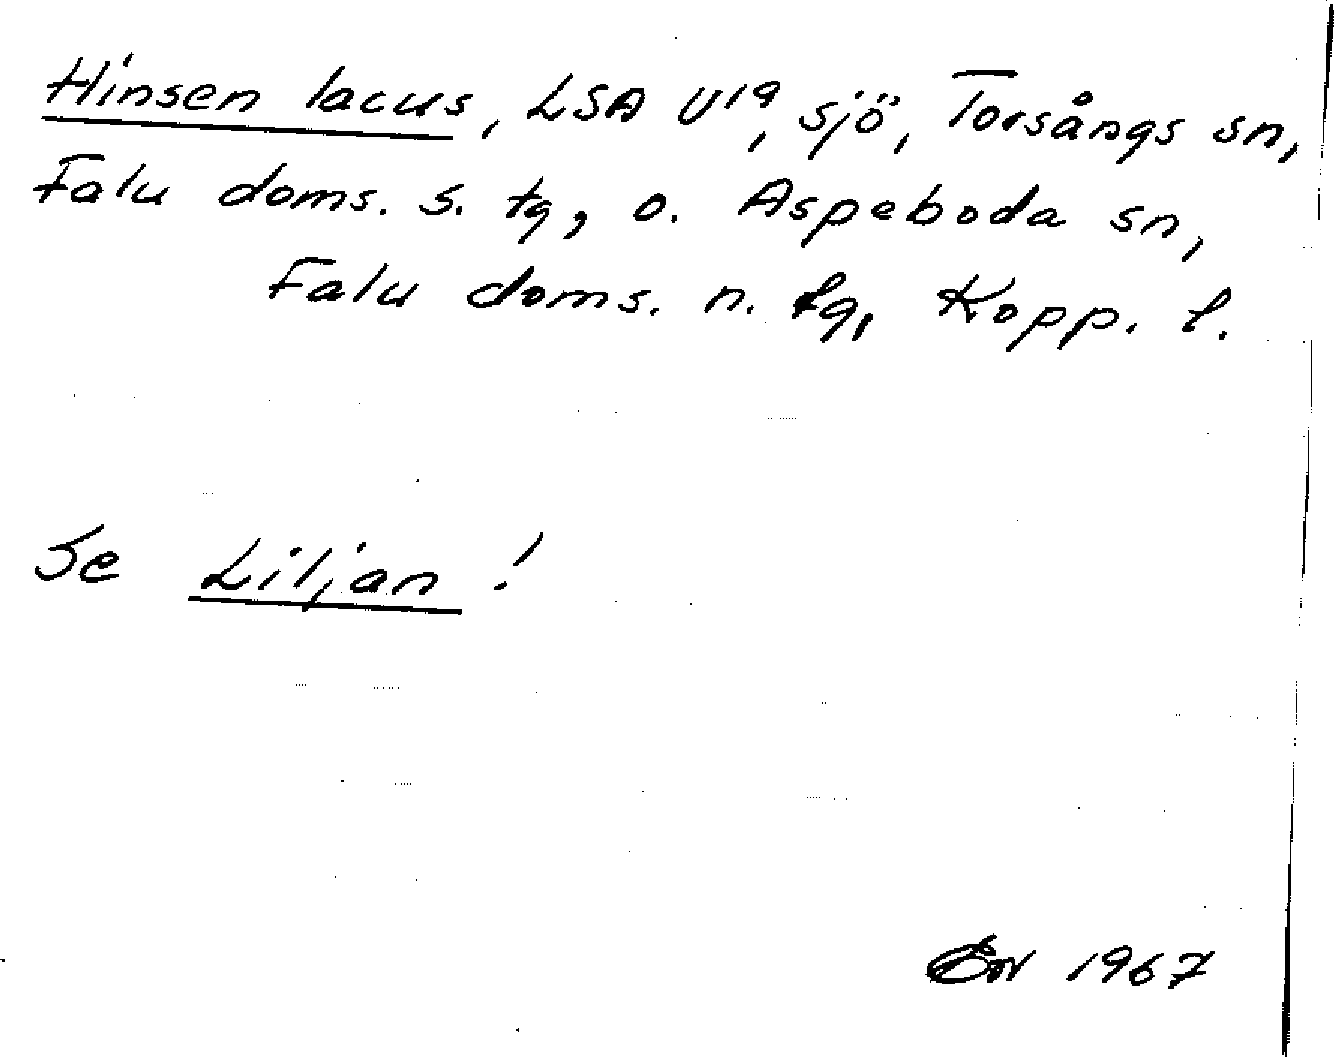 Hinsen lacus, LSA U19, sjö, Torsångs sn,
Falu doms. s. tg, o. Aspeboda sn,
Falu doms. n. tg, Kopp. l.
Se Liljan !
1967